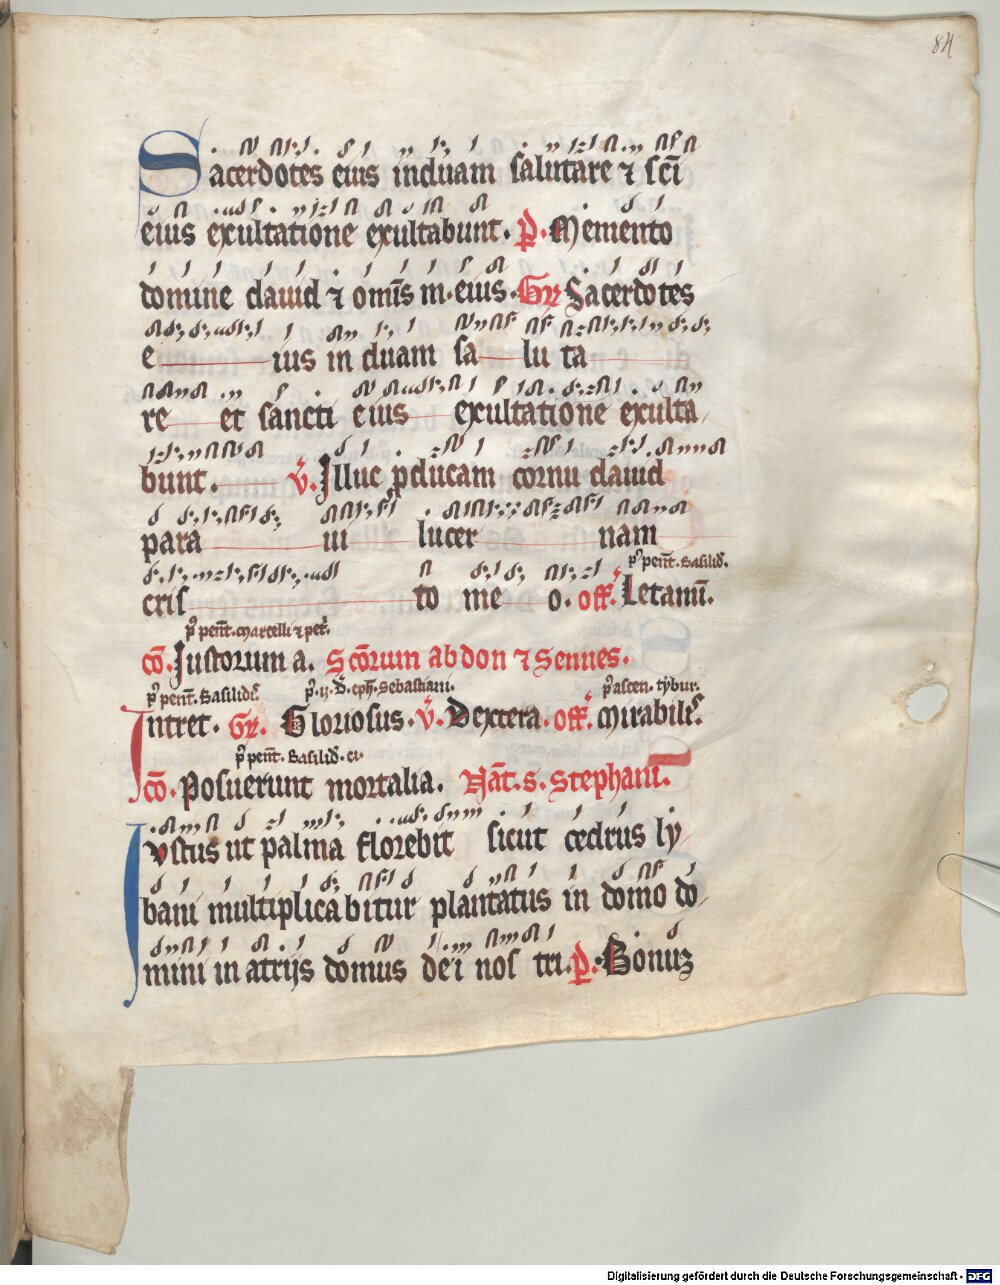 84
Sacerdotes eius induam salutare ⁊ sc̄i
eius exultatione exultabunt. p̄. Memento
domine dauid ⁊ om̄is m. eius. Gr̄ Sacerdotes
e ius in duam sa lu ta
re et sancti eius exultatione exulta
bunt. v̄. Illuc ꝑducam cornu dauid
para ui lucer nam
p᷒ penn̄t. Basilid᷒.
cris to me o. off̄. Letamī.
p᷒ penn̄t. marcelli ⁊ pet᷒.
cō. Justorum a. Scōrum abdon ⁊ Sennes.
p᷒ penn̄t. Basilid᷒. p᷒. ij. d᷒. eph̄. Sebastiani. p᷒ ascen. tybur.
Intret. Gr̄. Gloriosus. v̄. Dextera. off̄. Mirabil᷒.
p᷒ penn̄t. Basilid᷒. ci
cō. Posuerunt mortalia. Nāt. s. Stephani.
Justus ut palma florebit sicut cedrus ly
bani multiplicabitur plantatus in domo do
mini in atrijs domus dei nos tri. p̄. Bonuz
Digitalisierung gefördert durch die Deutsche Forschungsgemeinschaft - DFG